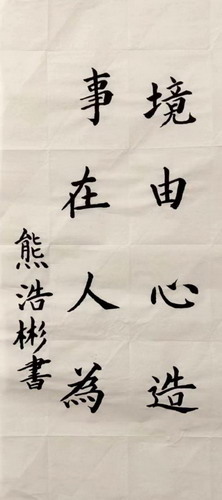 境由心造
事在人為
熊浩彬書